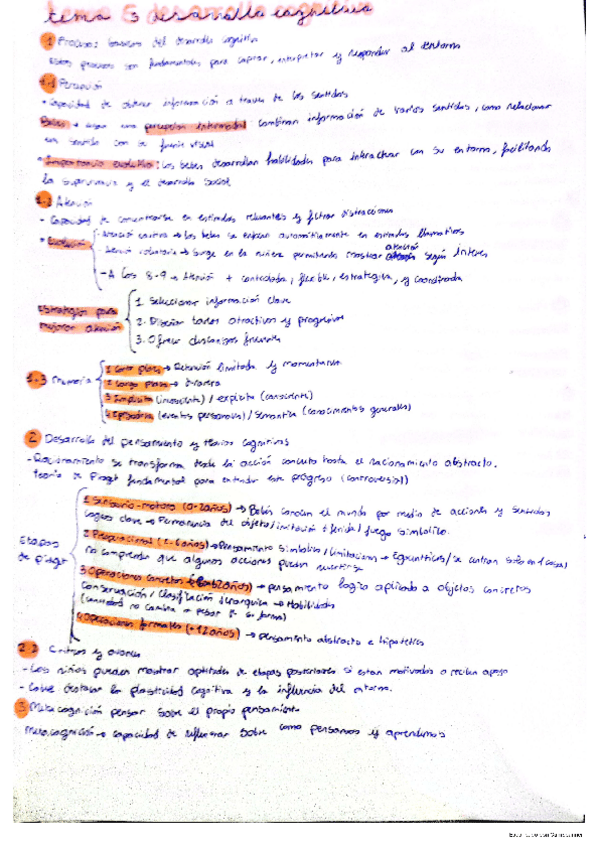 tema 3 desarrollo cognitivo
1 Procesos basicos del desarrollo cognitivo
Estos procesos son fundamentales para captar, interpretar y responder al entorno
1.1 Percepción
• Capacidad de obtener información a traves de los sentidos
Bebes → usan una percepcion intermodal: combinan información de varios sentidos, como relacionar
un sonido con su fuente visual
• Importancia evolutiva: los bebes desarrollan habilidades para interactuar con su entorno, facilitando
la supervivencia y el desarrollo social
1.2 Atención
- Capacidad de concentrarse en estimulos relevantes y filtrar distracciones
• Evolución - Atención cautiva → los bebes se enfocan automáticamente en estimulos llamativos
- Atención voluntaria → Surge en la niñez permitiendo mostrar atención según interes
- A los 8-9 → Atención + controlada, flexible, estrategica, y coordinada
Estrategias para mejorar atención
1. Seleccionar información clave
2. Diseñar tareas atractivas y progresivas
3. Ofrecer descansos frecuentes
1.3 Memoria
1 Corto plazo → Retención limitada y momentanea
2 Largo plazo → Duradera
3 Implicita (inconsciente) / explicita (consciente)
4 Episódica (eventos personales) / Semantica (conocimientos generales)
2 Desarrollo del pensamiento y teorias cognitivas
- Razonamiento se transforma desde la acción concreta hasta el razonamiento abstracto.
Teoria de Piaget fundamental para entender este progreso (controversial)
Etapas de piaget
1 Sensorio-motora (0-2años) → Bebés conocen el mundo por medio de acciones y sentidos
Logros clave → Permanencia del objeto/imitación diferida/juego simbolico.
2 Preoperacional (2-6años) → Pensamiento simbolico/limitaciones → Egocentricos/se centran solo en 1 cosa/
no comprender que algunas acciones pueden revertirse
3 Operaciones concretas (6-12años) → pensamiento logico aplicado a objetos concretos
Conservación/Clasificación jerarquica → Habilidades
(cantidad no cambia a pesar de su forma)
4 Operaciones formales (+12años) → Pensamiento abstracto e hipotetico
2.2 Criticas y avances
- Los niños pueden mostrar aptitudes de etapas posteriores si estan motivados o reciben apoyo
- Cabe destacar la plasticidad cognitiva y la influencia del entorno.
3 Metacognición pensar sobre el propio pensamiento
Metacognición → capacidad de reflexionar sobre como pensamos y aprendemos